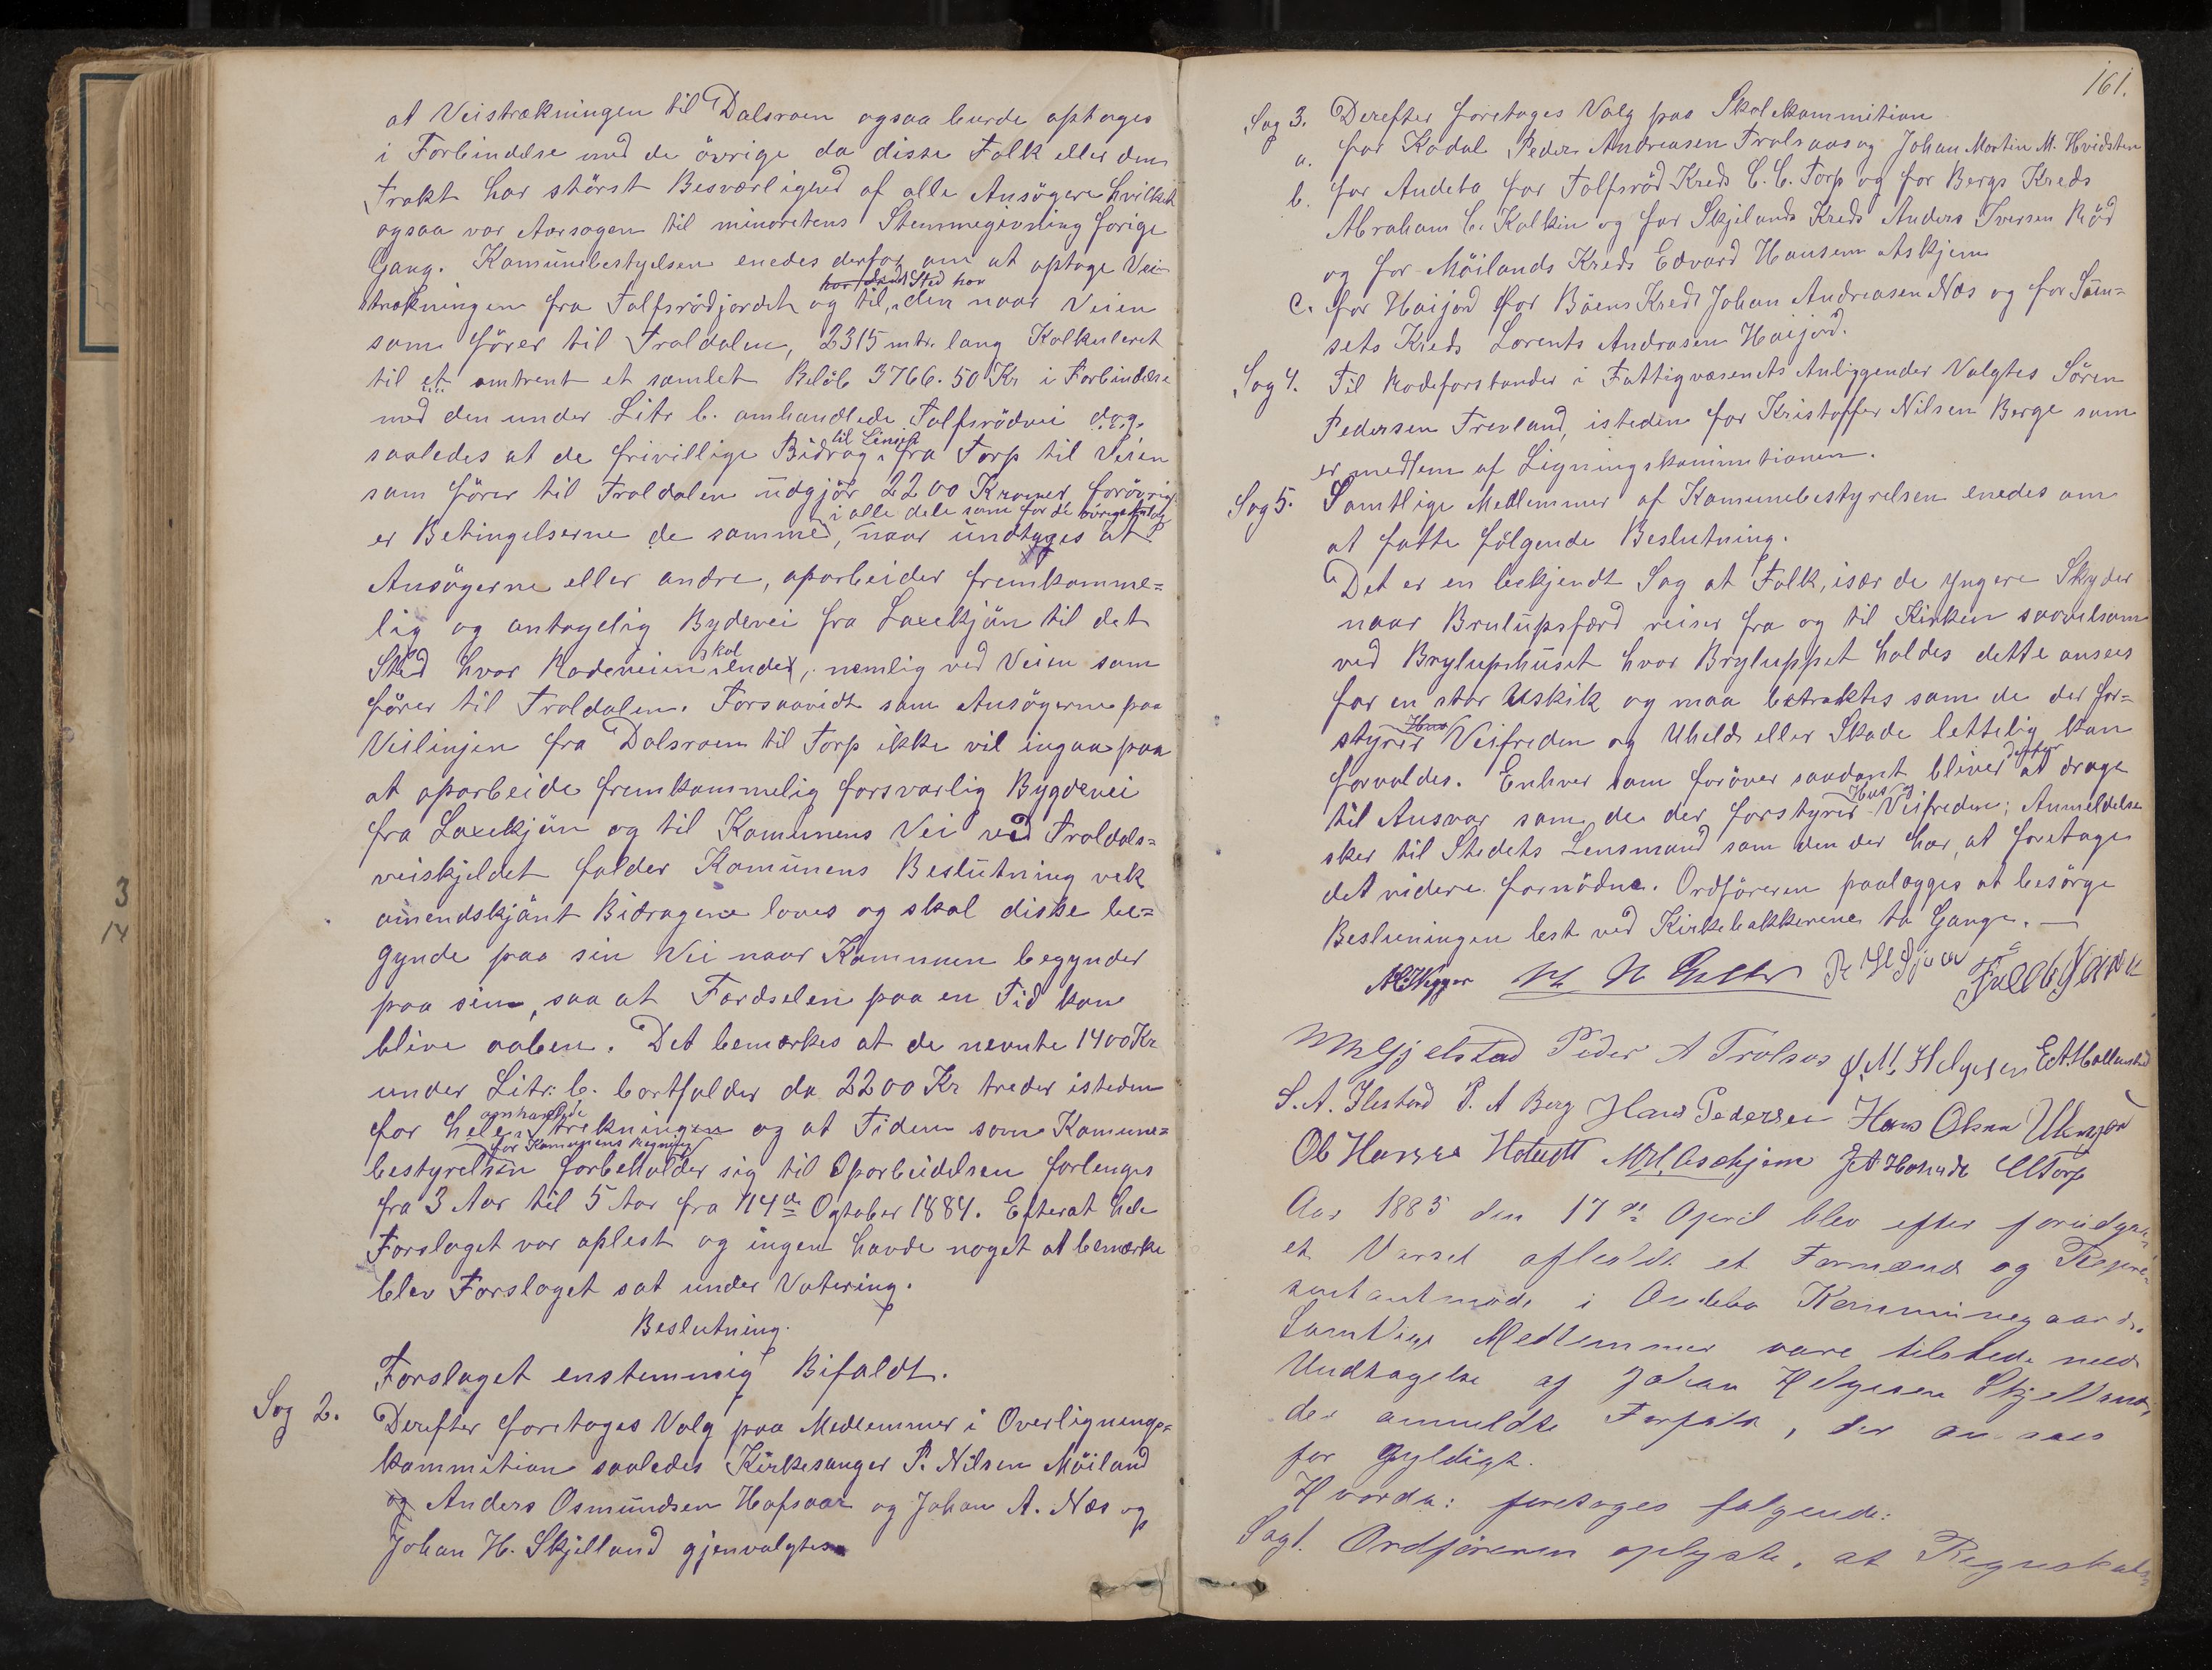 at Veistrækningen til Dalsroen ogsaa burde optages
i Forbindelse med de övrige da disse Folk eller den
Trakt har störst Besværlighed af alle Ansögere hvilket
ogsaa var Aarsagen til minoretens Stemmegivning forige
Gang. Kamunebestyelsen enedes derfor om at optage Vei-
trækningen fra Tolfsrödjordet og til, den naar Veien
som förer til Troldalen, 2315 mtr. lang Kalkuleret
til et omtrent et samlet Belöb 3766.50 Kr i Forbindelse
med den under Litr b. omhandlede Tolfsrödvei
saaledes at de frivillige Bidrag til Linien fra Torp til Veien
som förer til Troldalen udgjör 2200 Kroner, forövrigt
i alle dele som for de övrige
er Betingelserne de samme, naar undtages at
Ansögerne eller andre, oparbeider fremkomme=
lig og antagelig Bydevei fra Laxekjön til det
Sted hvor Rodeveien skal ende, nemlig ved Veien som
förer til Troldalen. Forsaavidt som Ansögerne paa
Veilinjen fra Dalsroen til Torp ikke vil ingaa paa
at oparbeide fremkommelig forsvarlig Bygdevei
fra Laxekjön og til Kamunens Vei ved Troldals=
veiskjeldet falder Kamunens Beslutning vek
omendskjönt Bidragene loves og skal disse be=
gynde paa sin Vei naar Kamunen begynder
paa sin, saa at Færdselen paa en Tid kan
blive aaben. Det bemærkes at de nevnte 1400 Kr
under Litr: b. bortfalder da 2200 Kr treder isteden
for hele omhandlede Strekningen og at Tiden som Kamune=
for Kamunens Regning
bestyrelsen forbeholder sig til Oparbeidelsen forlenges
fra 3 Aar til 5 Aar fra 14de Ogtober 1884. Efterat hele
Forslaget var oplest og ingen havde noget at bemærke
blev Forslaget sat under Votering.
Beslutning.
Forslaget enstemmig Bifaldt.
Sag 2. Derefter foretages Valg paa Medlemmer i Overlignings=
kammition saaledes Kirkesanger P. Nilsen Möiland
og Anders Osmundsen Hafsaas og Johan A. Næs og
Johan H. Skjelland gjenvalgtes
161.
Sag 3. Derefter foretages Valg paa Skolekammition
a. for Kodal Peder Andreasen Trolsaas og Johan Martin M. Hvidsten
b. for Andebo for Tolfsröd Kreds C. C. Torp og for Bergs Kreds
Abraham C. Kolkin og for Skjelands Kreds Anders Iversen Röd
og for Möilands Kreds Edvard Hansen Askjem
c. for Haijord for Böens Kreds Johan Andreasen Næs og for Süm=
sets Kreds Lorents Andrasen Haijord.
Sag 4. Til Rodeforstander i Fattigvæsenets Anliggender Valgtes Sören
Pedersen Trevland, isteden for Kristoffer Nilsen Berge som
er medlem af Ligningskammitionen.
Sag 5. Samtlige Medlemmer af Kamunebestyrelsen enedes om
at fatte fölgende Beslutning.
Det er en bekjendt Sag at Folk, især de yngere Skyder
naar Brulupsfærd reiser fra og til Kirken saavelsom
ved Bryluphuset hvor Bryluppet holdes dette ansees
for en stor Uskik og maa betraktes som de der for=
styrer Veifreden og Uheld eller Skade lettelig kan
forvoldes. Enhver som foröver saadant bliver derfor at drage
til Ansvar som de der forstyrer Hus og Veifreden; Anmeldelse
sker til Stedets Lensmand som den der har at foretage
det videre fornödne. Ordföreren paalægges at besörge
Beslutningen lest ved Kirkebakkerene to Gange. —
Peder A Trolsas J. M. Helgesen
P. A Berg Hans Pedersen Hans Olsen
M. H. Aschjem CCTorp
Aar 1885 den 17de April blev efter forudgaa-
et Varsel afholdt et Formænds og Repre-
sentantmöde i Andebo Kommunegaard.
Samtlige Medlemmer vare tilstede med
Undtagelse af Johan Helgesen Skjelland,
der anmeldte Forfald, der ansees
for gyldigt.
Hvorda: foretages folgende:
Sag 1. Ordføreren oplyste, at Regnskabs